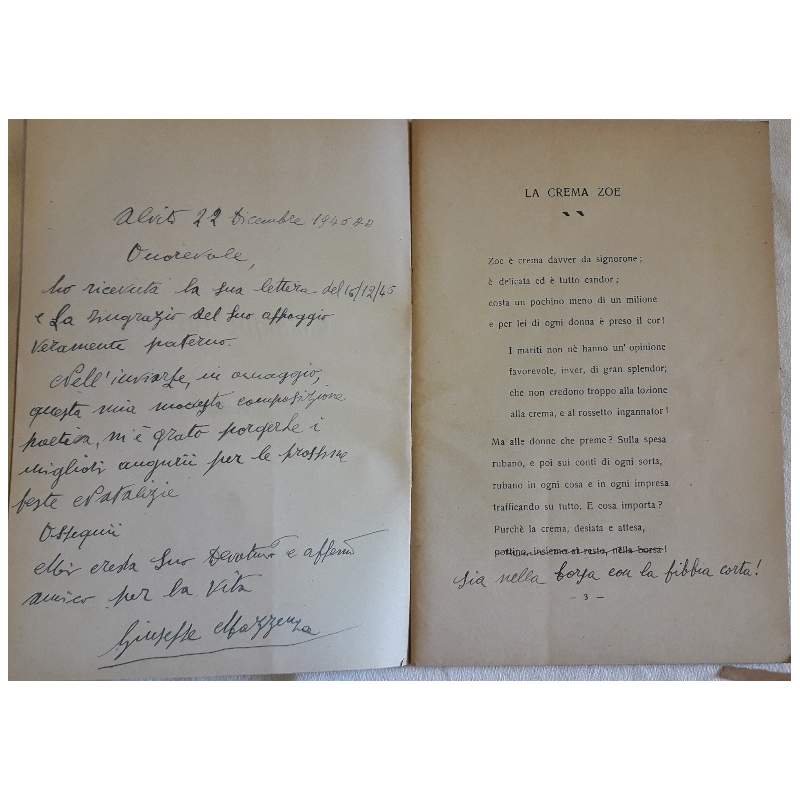 Alvito 22 Dicembre 1945
Onorevole,
ho ricevuta la sua lettera del 16/12/45
e La ringrazio del Suo appoggio
veramente paterno.
Nell'inviarLe, in omaggio,
questa mia modesta composizione
poetica, m'è grato porgerLe i
migliori augurii per le prossime
feste Natalizie
Ossequii
Mi creda Suo Devotmo e affemo
amico per la vita
Giuseppe Mazzenga
LA CREMA ZOE
Zoe è crema davver da signorone ;
è delicata ed è tutto candor ;
costa un pochino meno di un milione
e per lei di ogni donna è preso il cor !
I mariti non nè hanno un' opinione
favorevole, inver, di gran splendor;
che non credono troppo alla lozione
alla crema, e al rossetto ingannator !
Ma alle donne che preme ? Sulla spesa
rubano, e poi sui conti di ogni sorta,
rubano in ogni cosa e in ogni impresa
trafficando su tutto. E cosa importa ?
Purchè la crema, desiata e attesa,
insieme al resto, nella borsa !
sia nella borsa con la fibbia corta!
— 3 —